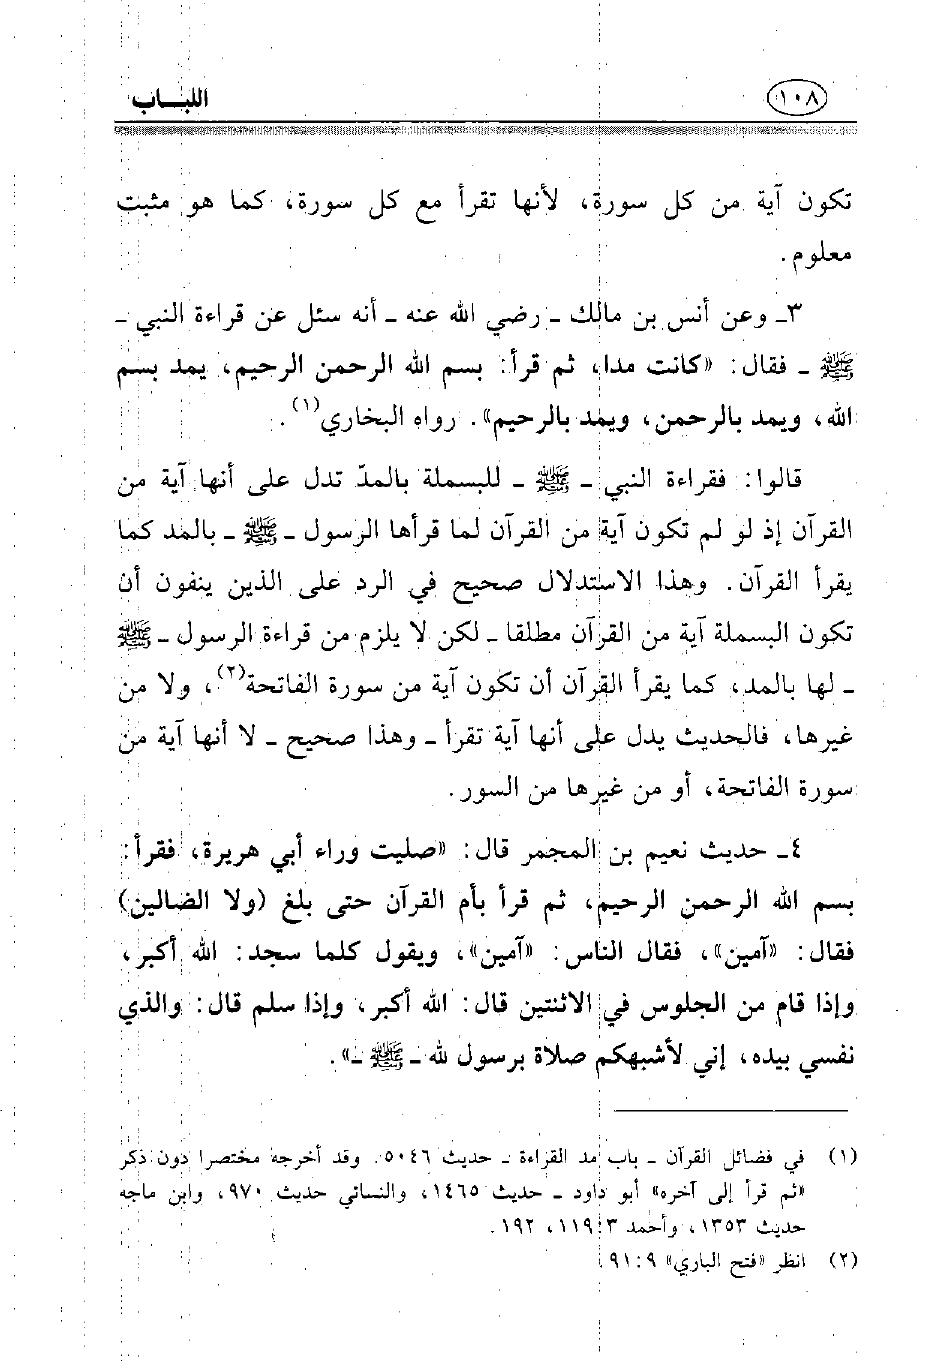 ١٠٨ اللبـــاب
تكون آية من كل سورة، لأنها تقرأ مع كل سورة، كما هو مثبت
معلوم.
٣ـ وعن أنس بن مالك ـ رضي الله عنه ـ أنه سئل عن قراءة النبي ـ
ﷺ ـ فقال: «كانت مدا، ثم قرأ: بسم الله الرحمن الرحيم، يمد بسم
الله، ويمد بالرحمن، ويمد بالرحيم». رواه البخاري(١).
قالوا: فقراءة النبي ـ ﷺ ـ للبسملة بالمدّ تدل على أنها آية من
القرآن إذ لو لم تكون آية من القرآن لما قرأها الرسول ـ ﷺ ـ بالمد كما
يقرأ القرآن. وهذا الاستدلال صحيح في الرد على الذين ينفون أن
تكون البسملة آية من القرآن مطلقا ـ لكن لا يلزم من قراءة الرسول ـ ﷺ
ـ لها بالمد، كما يقرأ القرآن أن تكون آية من سورة الفاتحة(٢)، ولا من
غيرها، فالحديث يدل على أنها آية تقرأ ـ وهذا صحيح ـ لا أنها آية من
سورة الفاتحة، أو من غيرها من السور.
٤ـ حديث نعيم بن المجمر قال: «صليت وراء أبي هريرة، فقرأ:
بسم الله الرحمن الرحيم، ثم قرأ بأم القرآن حتى بلغ (ولا الضالين)
فقال: «آمين»، فقال الناس: «آمين»، ويقول كلما سجد: الله أكبر،
وإذا قام من الجلوس في الاثنتين قال: الله أكبر، وإذا سلم قال: والذي
نفسي بيده، إني لأشبهكم صلاة برسول لله ـ ﷺ ـ».
(١) في فضائل القرآن ـ باب مد القراءة ـ حديث ٥٠٤٦. وقد أخرجه مختصرا دون ذكر
«ثم قرأ إلى آخره» أبو داود ـ حديث ١٤٦٥، والنسائي حديث ٩٧٠، وابن ماجه
حديث ١٣٥٣، وأحمد ٣:١١٩، ١٩٢.
(٢) انظر «فتح الباري» ٩:٩١.